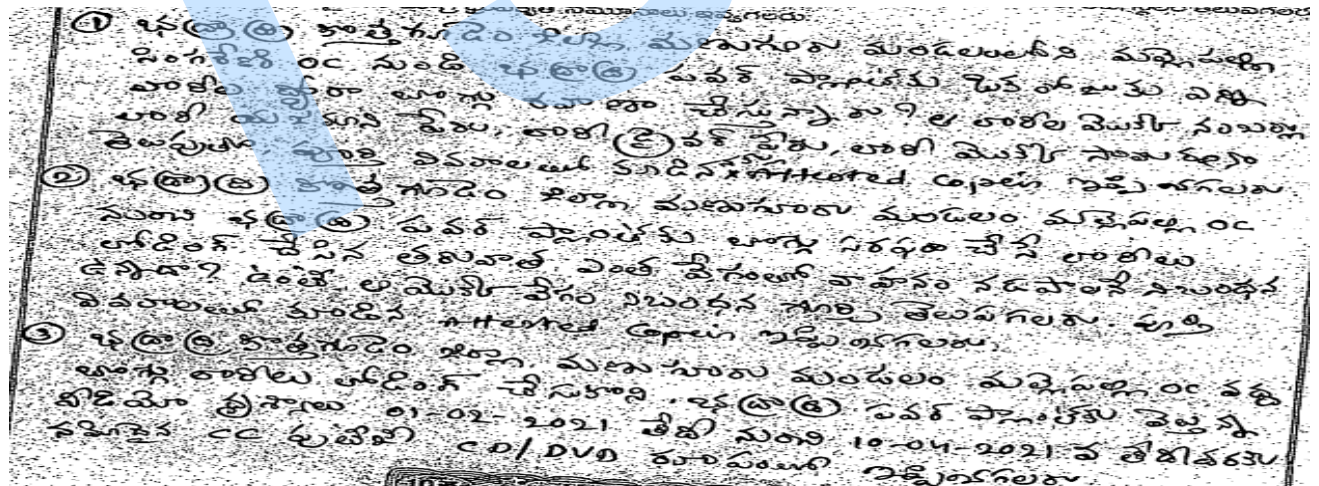 నమూనాలు ఇవ్వగలరు.
① భద్రాద్రి కొత్తగూడెం జిల్లా మణుగూరు మండలంలోని మల్లెపల్లి
సింగరేణి OC నుండి భద్రాద్రి పవర్ ప్లాంట్‌కు ఒక రోజుకు ఎన్ని
లారీల ద్వారా బొగ్గు రవాణా చేస్తున్నారు? ఆ లారీల యొక్క నంబర్లు
లారీ యజమాని పేరు, లారీ డ్రైవర్ పేరు, లారీ యొక్క
తెలుపుతూ, పూర్తి వివరాలతో కూడిన Attested Copein ఇప్పించగలరు
② భద్రాద్రి కొత్తగూడెం జిల్లా మణుగూరు మండలం మల్లెపల్లి OC
నుంచి భద్రాద్రి పవర్ ప్లాంట్‌కు బొగ్గు సరఫరా చేసే లారీలు
లోడింగ్ చేసిన తరువాత ఎంత వేగంతో వాహనం నడపాలనే నిబంధన
ఉన్నదా? ఉంటే ఆ యొక్క వేగం నిబంధన గూర్చి తెలుపగలరు. పూర్తి
వివరాలతో కూడిన Attested Copein ఇప్పించగలరు.
③ భద్రాద్రి కొత్తగూడెం జిల్లా మణుగూరు మండలం మల్లెపల్లి OC వద్ద
బొగ్గు లారీలు లోడింగ్ చేసుకొని భద్రాద్రి పవర్ ప్లాంట్‌కు వెళ్తున్న
వీడియో దృశ్యాలు 01-02-2021 తేదీ నుంచి 10-04-2021 వ తేదీ వరకు
CC ఫుటేజీ CD/DVD రూపంలో ఇప్పించగలరు.